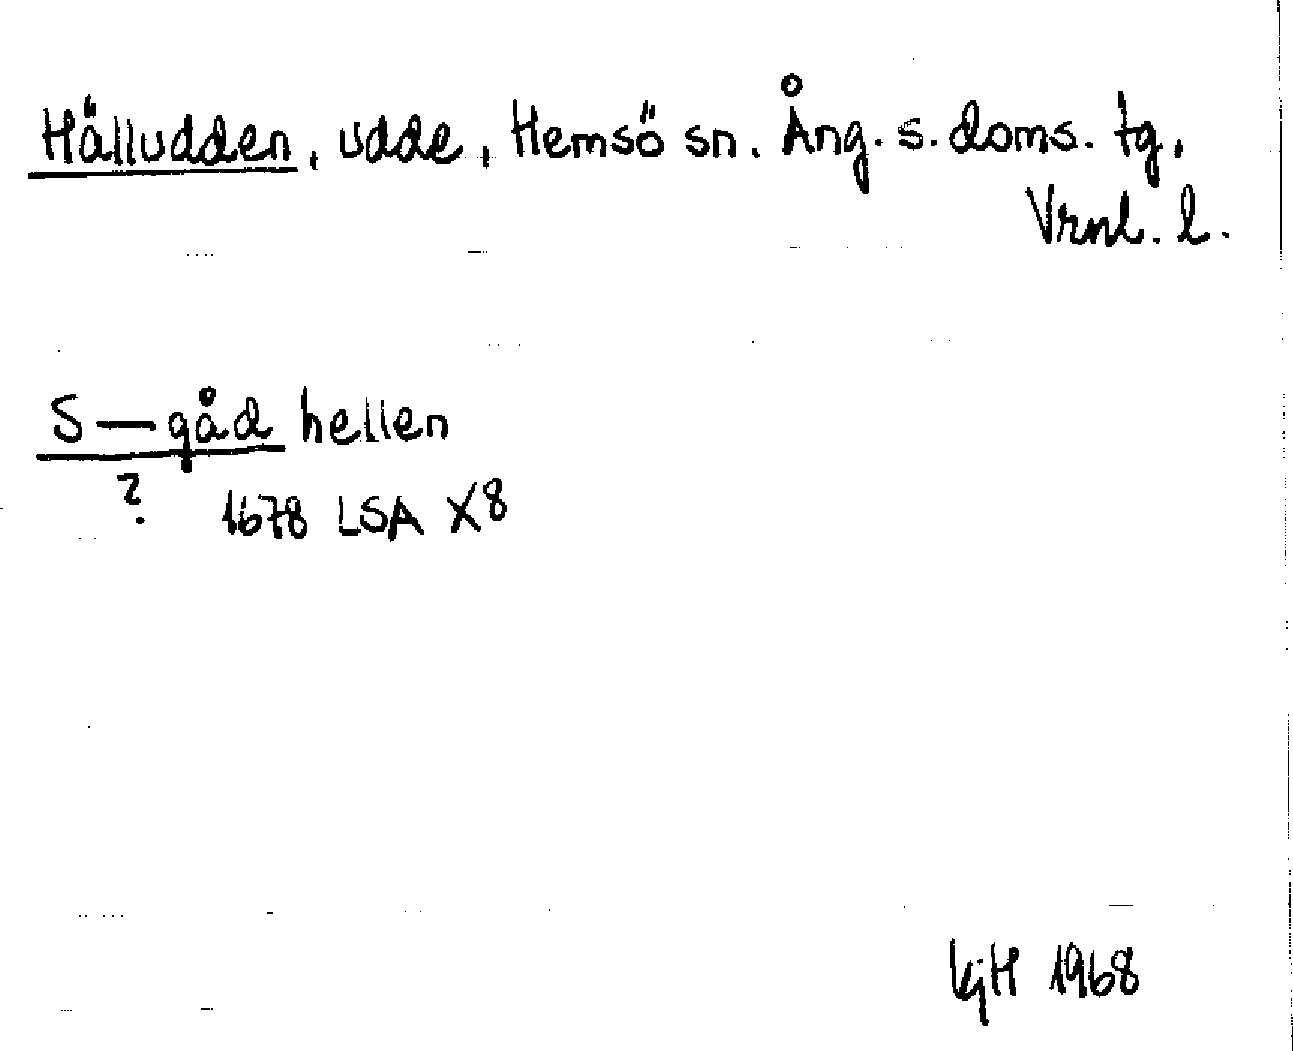 Hälludden, udde, Hemsö sn. Ång. s. doms. tg.
Vrnl. l.
S—gåd hellen
? 1678 LSA X8
kjH 1968